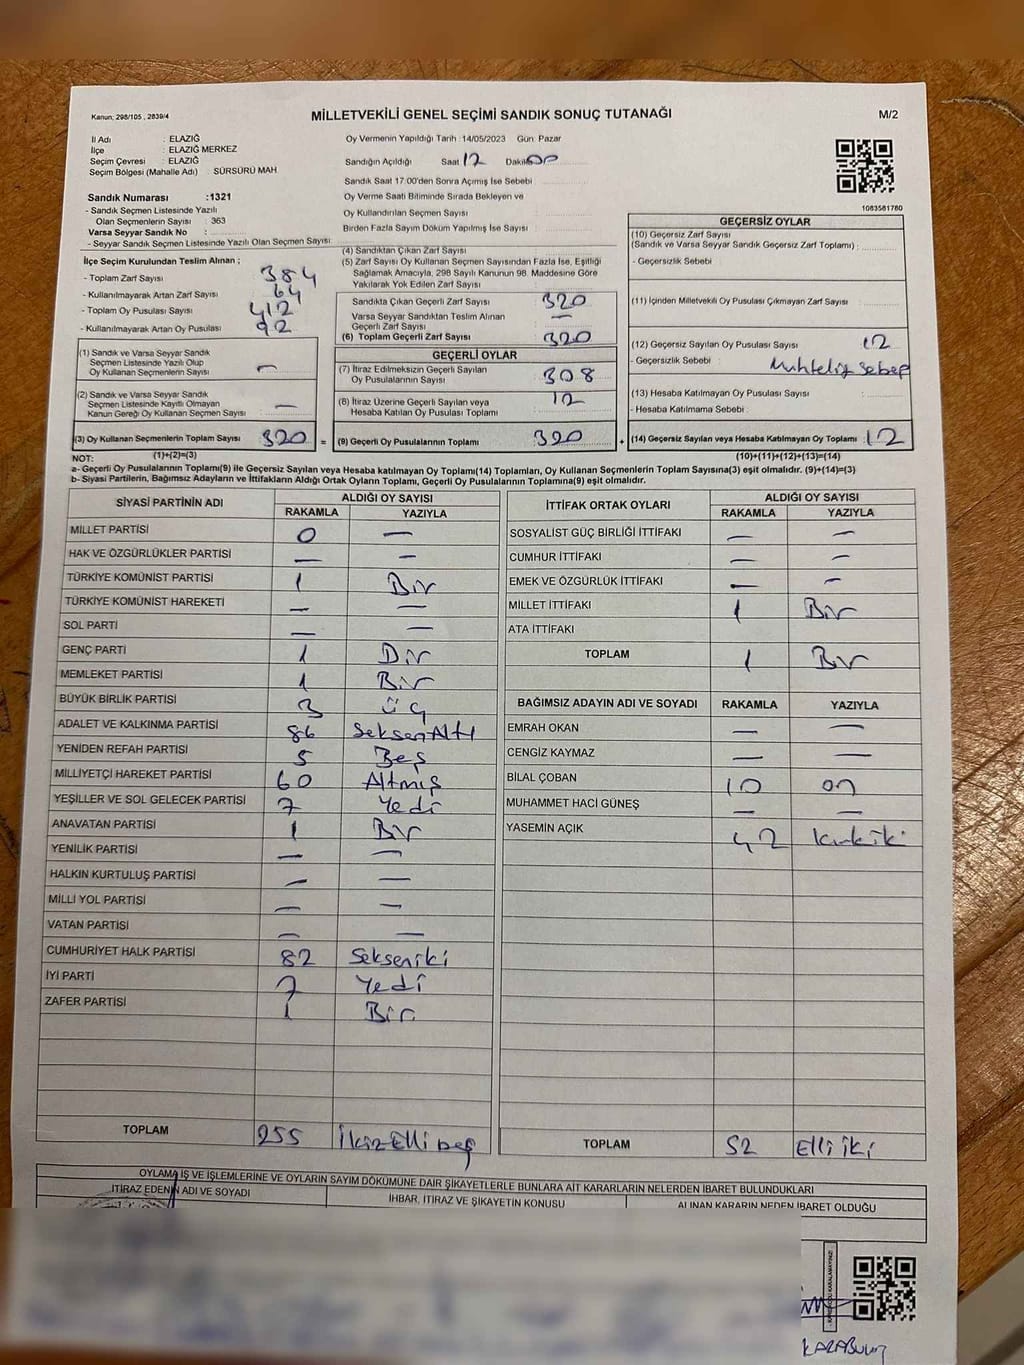 Kanun; 298/105 , 2839/4
MİLLETVEKİLİ GENEL SEÇİMİ SANDIK SONUÇ TUTANAĞI
M/2
İl Adı : ELAZIĞ
İlçe : ELAZIĞ MERKEZ
Seçim Çevresi : ELAZIĞ
Seçim Bölgesi (Mahalle Adı) SÜRSÜRÜ MAH
Oy Vermenin Yapıldığı Tarih :14/05/2023 Gün: Pazar
Sandığın Açıldığı Saat 12 Dakika 00
Sandık Saat 17.00'den Sonra Açmış İse Sebebi
Oy Verme Saati Bitiminde Sırada Bekleyen ve
Oy Kullandırılan Seçmen Sayısı
Birden Fazla Sayım Döküm Yapılmış İse Sayısı
1083581780
Sandık Numarası :1321
- Sandık Seçmen Listesinde Yazılı
Olan Seçmenlerin Sayısı : 363
Varsa Seyyar Sandık No :
- Seyyar Sandık Seçmen Listesinde Yazılı Olan Seçmen Sayısı:
İlçe Seçim Kurulundan Teslim Alınan ;
- Toplam Zarf Sayısı 384
- Kullanılmayarak Artan Zarf Sayısı 64
- Toplam Oy Pusulası Sayısı 412
- Kullanılmayarak Artan Oy Pusulası 92
(1) Sandık ve Varsa Seyyar Sandık
Seçmen Listesinde Yazılı Olup
Oy Kullanan Seçmenlerin Sayısı : —
(2) Sandık ve Varsa Seyyar Sandık
Seçmen Listesinde Kayıtlı Olmayan
Kanun Gereği Oy Kullanan Seçmen Sayısı : —
(3) Oy Kullanan Seçmenlerin Toplam Sayısı 320 =
(4) Sandıktan Çıkan Zarf Sayısı
(5) Zarf Sayısı Oy Kullanan Seçmen Sayısından Fazla İse, Eşitliği
Sağlamak Amacıyla, 298 Sayılı Kanunun 98. Maddesine Göre
Yakılarak Yok Edilen Zarf Sayısı
Sandıkta Çıkan Geçerli Zarf Sayısı 320
Varsa Seyyar Sandıktan Teslim Alınan
Geçerli Zarf Sayısı : —
(6) Toplam Geçerli Zarf Sayısı : 320
GEÇERLİ OYLAR
(7) İtiraz Edilmeksizin Geçerli Sayılan
Oy Pusulalarının Sayısı : 308
(8) İtiraz Üzerine Geçerli Sayılan veya
Hesaba Katılan Oy Pusulası Toplamı : 12
(9) Geçerli Oy Pusulalarının Toplamı : 320 +
GEÇERSİZ OYLAR
(10) Geçersiz Zarf Sayısı
(Sandık ve Varsa Seyyar Sandık Geçersiz Zarf Toplamı) :
- Geçersizlik Sebebi :
(11) İçinden Milletvekili Oy Pusulası Çıkmayan Zarf Sayısı
(12) Geçersiz Sayılan Oy Pusulası Sayısı : 12
- Geçersizlik Sebebi : Muhtelif Sebep
(13) Hesaba Katılmayan Oy Pusulası Sayısı :
- Hesaba Katılmama Sebebi :
(14) Geçersiz Sayılan veya Hesaba Katılmayan Oy Toplamı : 12
NOT: (1)+(2)=(3)
(10)+(11)+(12)+(13)=(14)
a- Geçerli Oy Pusulalarının Toplamı(9) ile Geçersiz Sayılan veya Hesaba katılmayan Oy Toplamı(14) Toplamları, Oy Kullanan Seçmenlerin Toplam Sayısına(3) eşit olmalıdır. (9)+(14)=(3)
b- Siyasi Partilerin, Bağımsız Adayların ve İttifakların Aldığı Ortak Oyların Toplamı, Geçerli Oy Pusulalarının Toplamına(9) eşit olmalıdır.
SİYASİ PARTİNİN ADI ALDIĞI OY SAYISI
RAKAMLA YAZIYLA
MİLLET PARTİSİ 0 —
HAK VE ÖZGÜRLÜKLER PARTİSİ — —
TÜRKİYE KOMÜNİST PARTİSİ 1 Bir
TÜRKİYE KOMÜNİST HAREKETİ — —
SOL PARTİ — —
GENÇ PARTİ 1 Bir
MEMLEKET PARTİSİ 1 Bir
BÜYÜK BİRLİK PARTİSİ 3 üç
ADALET VE KALKINMA PARTİSİ 86 Seksen Altı
YENİDEN REFAH PARTİSİ 5 Beş
MİLLİYETÇİ HAREKET PARTİSİ 60 Altmış
YEŞİLLER VE SOL GELECEK PARTİSİ 7 Yedi
ANAVATAN PARTİSİ 1 Bir
YENİLİK PARTİSİ — —
HALKIN KURTULUŞ PARTİSİ — —
MİLLİ YOL PARTİSİ — —
VATAN PARTİSİ — —
CUMHURİYET HALK PARTİSİ 82 Sekseniki
İYİ PARTİ 7 Yedi
ZAFER PARTİSİ 1 Bir
TOPLAM 255 İkizElli beş
İTTİFAK ORTAK OYLARI ALDIĞI OY SAYISI
RAKAMLA YAZIYLA
SOSYALİST GÜÇ BİRLİĞİ İTTİFAKI — —
CUMHUR İTTİFAKI — —
EMEK VE ÖZGÜRLÜK İTTİFAKI — —
MİLLET İTTİFAKI 1 Bir
ATA İTTİFAKI
TOPLAM 1 Bir
BAĞIMSIZ ADAYIN ADI VE SOYADI RAKAMLA YAZIYLA
EMRAH OKAN — —
CENGİZ KAYMAZ — —
BİLAL ÇOBAN 10 on
MUHAMMET HACİ GÜNEŞ — —
YASEMİN AÇIK 42 kırkiki
TOPLAM 52 Elli iki
OYLAMA İŞ VE İŞLEMLERİNE VE OYLARIN SAYIM DÖKÜMÜNE DAİR ŞİKAYETLERLE BUNLARA AİT KARARLARIN NELERDEN İBARET BULUNDUKLARI
İTİRAZ EDENİN ADI VE SOYADI İHBAR, İTİRAZ VE ŞİKAYETİN KONUSU ALINAN KARARIN NEDEN İBARET OLDUĞU
KARABULUT